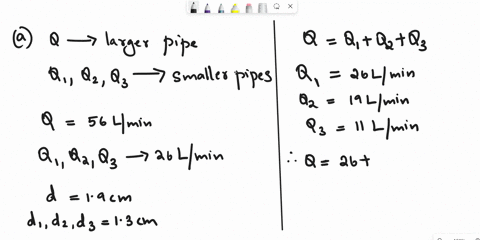 (a) Q → larger pipe
Q₁, Q₂, Q₃ → smaller pipes
Q = 56 L/min
Q₁, Q₂, Q₃ → 26 L/min
d = 1.9 cm
d₁, d₂, d₃ = 1.3 cm
Q = Q₁ + Q₂ + Q₃
Q₁ = 26 L/min
Q₂ = 19 L/min
Q₃ = 11 L/min
∴ Q = 26 +